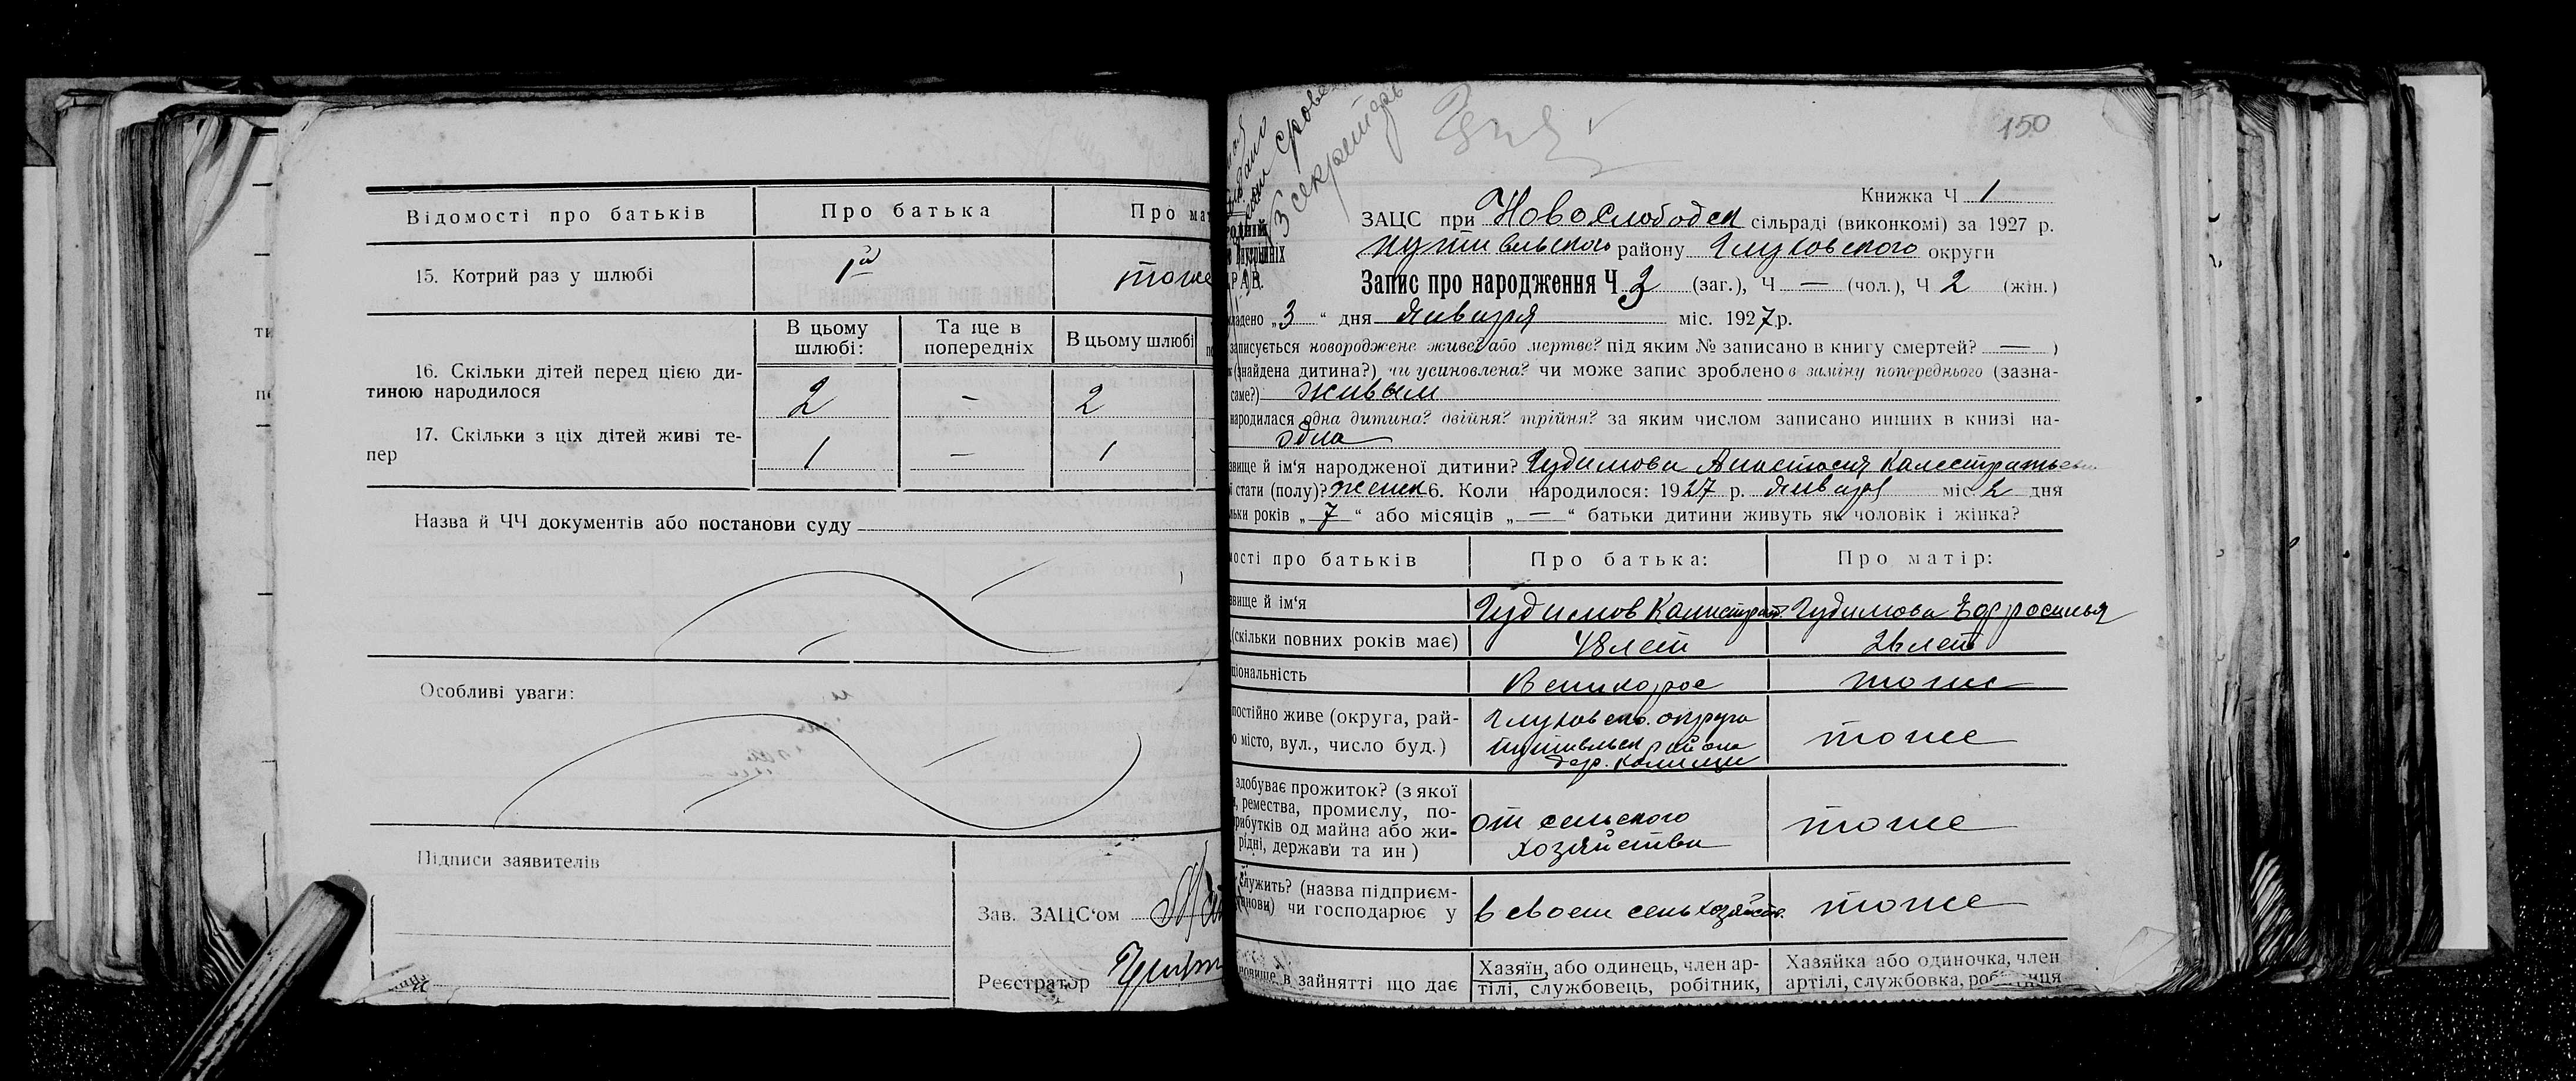 Відомості про батьків
Про батька
Про мат
15. Котрий раз у шлюбі
1й
тоже
В цьому шлюбі:
Та ще в попередніх
В цьому шлюбі
16. Скільки дітей перед цією ди-
тиною народилося
2
-
2
17. Скільки з ціх дітей живі те-
пер
1
-
1
Назва й ЧЧ документів або постанови суду
Особливі уваги:
Підписи заявителів
Зав. ЗАЦС‘ом
Реєстратор
секретарь
150
Книжка Ч 1
ЗАЦС при Новослободск сільраді (виконкомі) за 1927 р.
Путивльского району Глуховского округи
Запис про народження Ч 3 (заг.), Ч — (чол.), Ч 2 (жін.)
ладено „3“ дня Января міс. 1927 р.
записується новороджене живе? або мертве? під яким № записано в книгу смертей? — )
(знайдена дитина?) чи усиновлена? чи може запис зроблено в заміну попереднього (зазна-
саме?) живым
народилася одна дитина? двійня? трійня? за яким числом записано инших в книзі на-
одна
звище й ім‘я народженої дитини? Гудимова Анастасия Калестратьевн
стати (полу)? женск 6. Коли народилося: 1927 р. Января міс. 2 дня
льки років „7“ або місяців „—“ батьки дитини живуть як чоловік і жінка?
мості про батьків
Про батька:
Про матір:
звище й ім‘я
Гудимов Калистрат.
Гудимова Ефросинья
(скільки повних років має)
48 лет
26 лет
ціональність
Великорос
тоже
постійно живе (округа, рай-
о місто, вул., число буд.)
Глуховско. округа
Путивльск района
дер. Калищи
тоже
здобуває прожиток? (з якої
, ремества, промислу, по-
рибутків од майна або жи-
рідні, держави та ин)
от сельского
хозяйства
тоже
служить? (назва підприєм-
танови) чи господарює у
в своем сельхозяйств.
тоже
новище в зайнятті що дає
Хазяїн, або одинець, член ар-
тілі, службовець, робітник,
Хазяйка або одиночка, член
артілі, службовка, робітниця